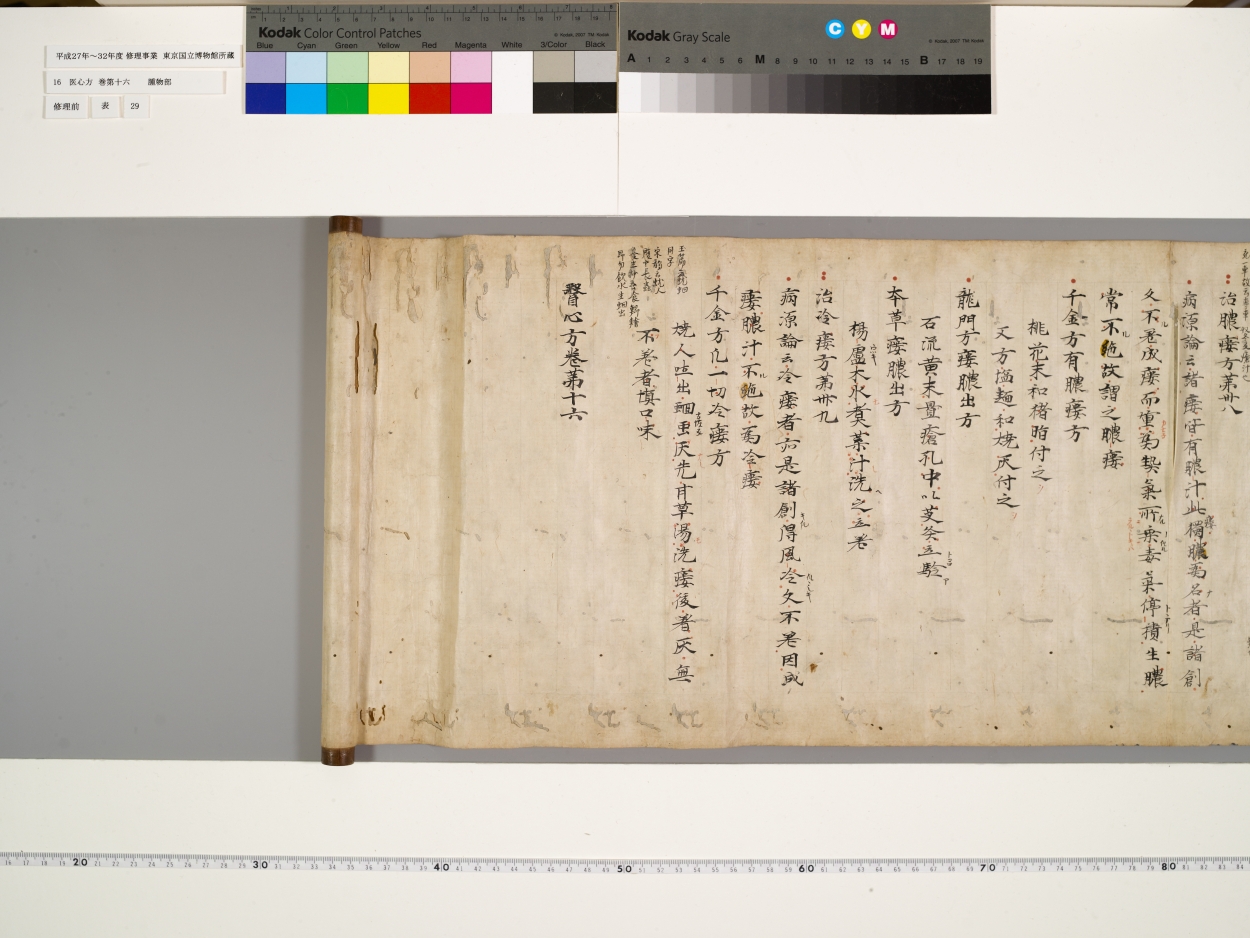 平成27年～32年度 修理事業 東京国立博物館所蔵
16 医心方 巻第十六 腫物部
修理前 表 29
Kodak Color Control Patches
Blue Cyan Green Yellow Red Magenta White 3/Color Black
Kodak Gray Scale
C Y M
A 1 2 3 4 5 6 M 8 9 10 11 12 13 14 15 B 17 18 19
治膿瘻方第卅八
病源論云諸瘻皆有膿汁此獨膿為名者是諸創
久不差成瘻而重為熱氣所乗毒氣停積生膿
常不絶故謂之膿瘻
千金方有膿瘻方
桃花末和猪脂付之
又方塩麺和焼灰付之
龍門方瘻膿出方
石流黄末置瘡孔中以艾灸立驗
本草瘻膿出方
楊盧木水煮葉汁洗之立差
治冷瘻方第卅九
病源論云冷瘻者亦是諸創得風冷久不差因成
瘻膿汁不絶故為冷瘻
千金方凡一切冷瘻方
焼人吐出蛔虫灰先甘草湯洗瘻後着灰無
不差者慎口味
醫心方卷第十六
20 30 40 50 60 70 80